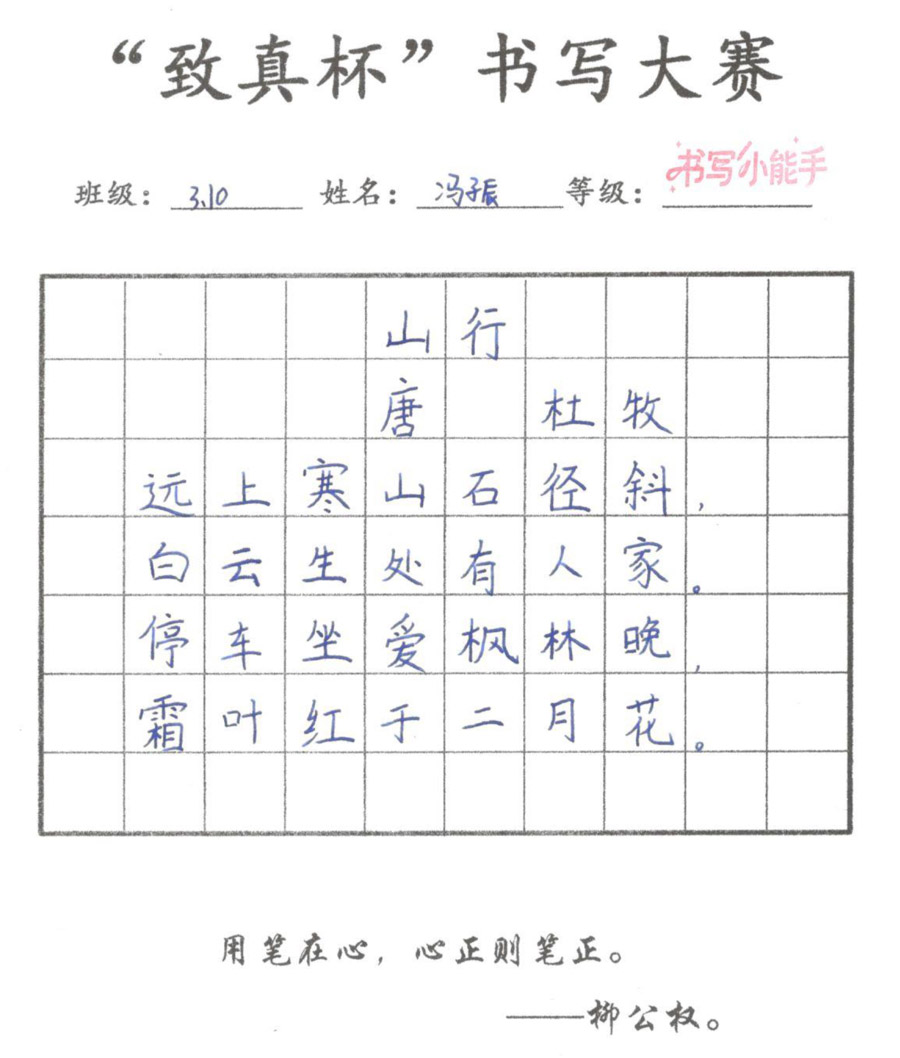 “致真杯”书写大赛
书写小能手
班级：3.10 姓名：冯子辰 等级：
山行
唐 杜牧
远上寒山石径斜，
白云生处有人家。
停车坐爱枫林晚，
霜叶红于二月花。
用笔在心，心正则笔正。
——柳公权。